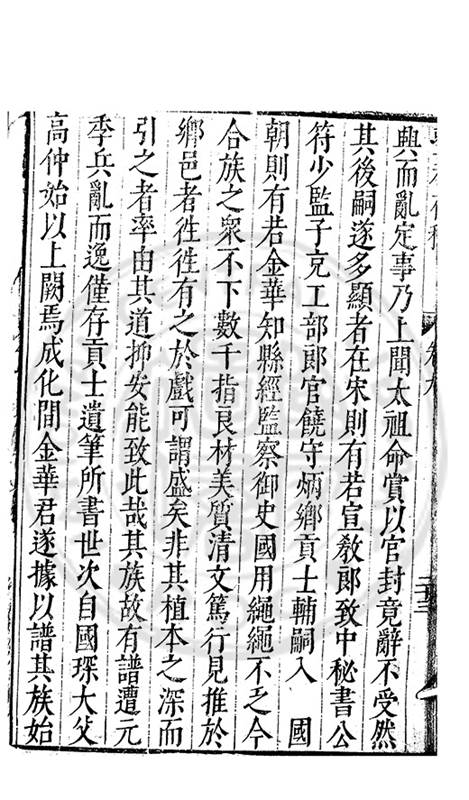 卷九
興而亂定事乃上聞太祖命賞以官封竟辭不受然
其後嗣遂多顯者在宋則有若宣敎郎致中秘書公
符少監子克工部郎官饒守炳鄉貢士輔嗣入 國
朝則有若金華知縣經監察御史國用繩繩不乏今
合族之衆不下數千指良材美質清文篤行見推於
鄉邑者徃徃有之於戲可謂盛矣非其植本之深而
引之者率由其道抑安能致此哉其族故有譜遭元
季兵亂而逸僅存貢士遺筆所書世次自國琛大父
高仲始以上闕焉成化間金華君遂據以譜其族始